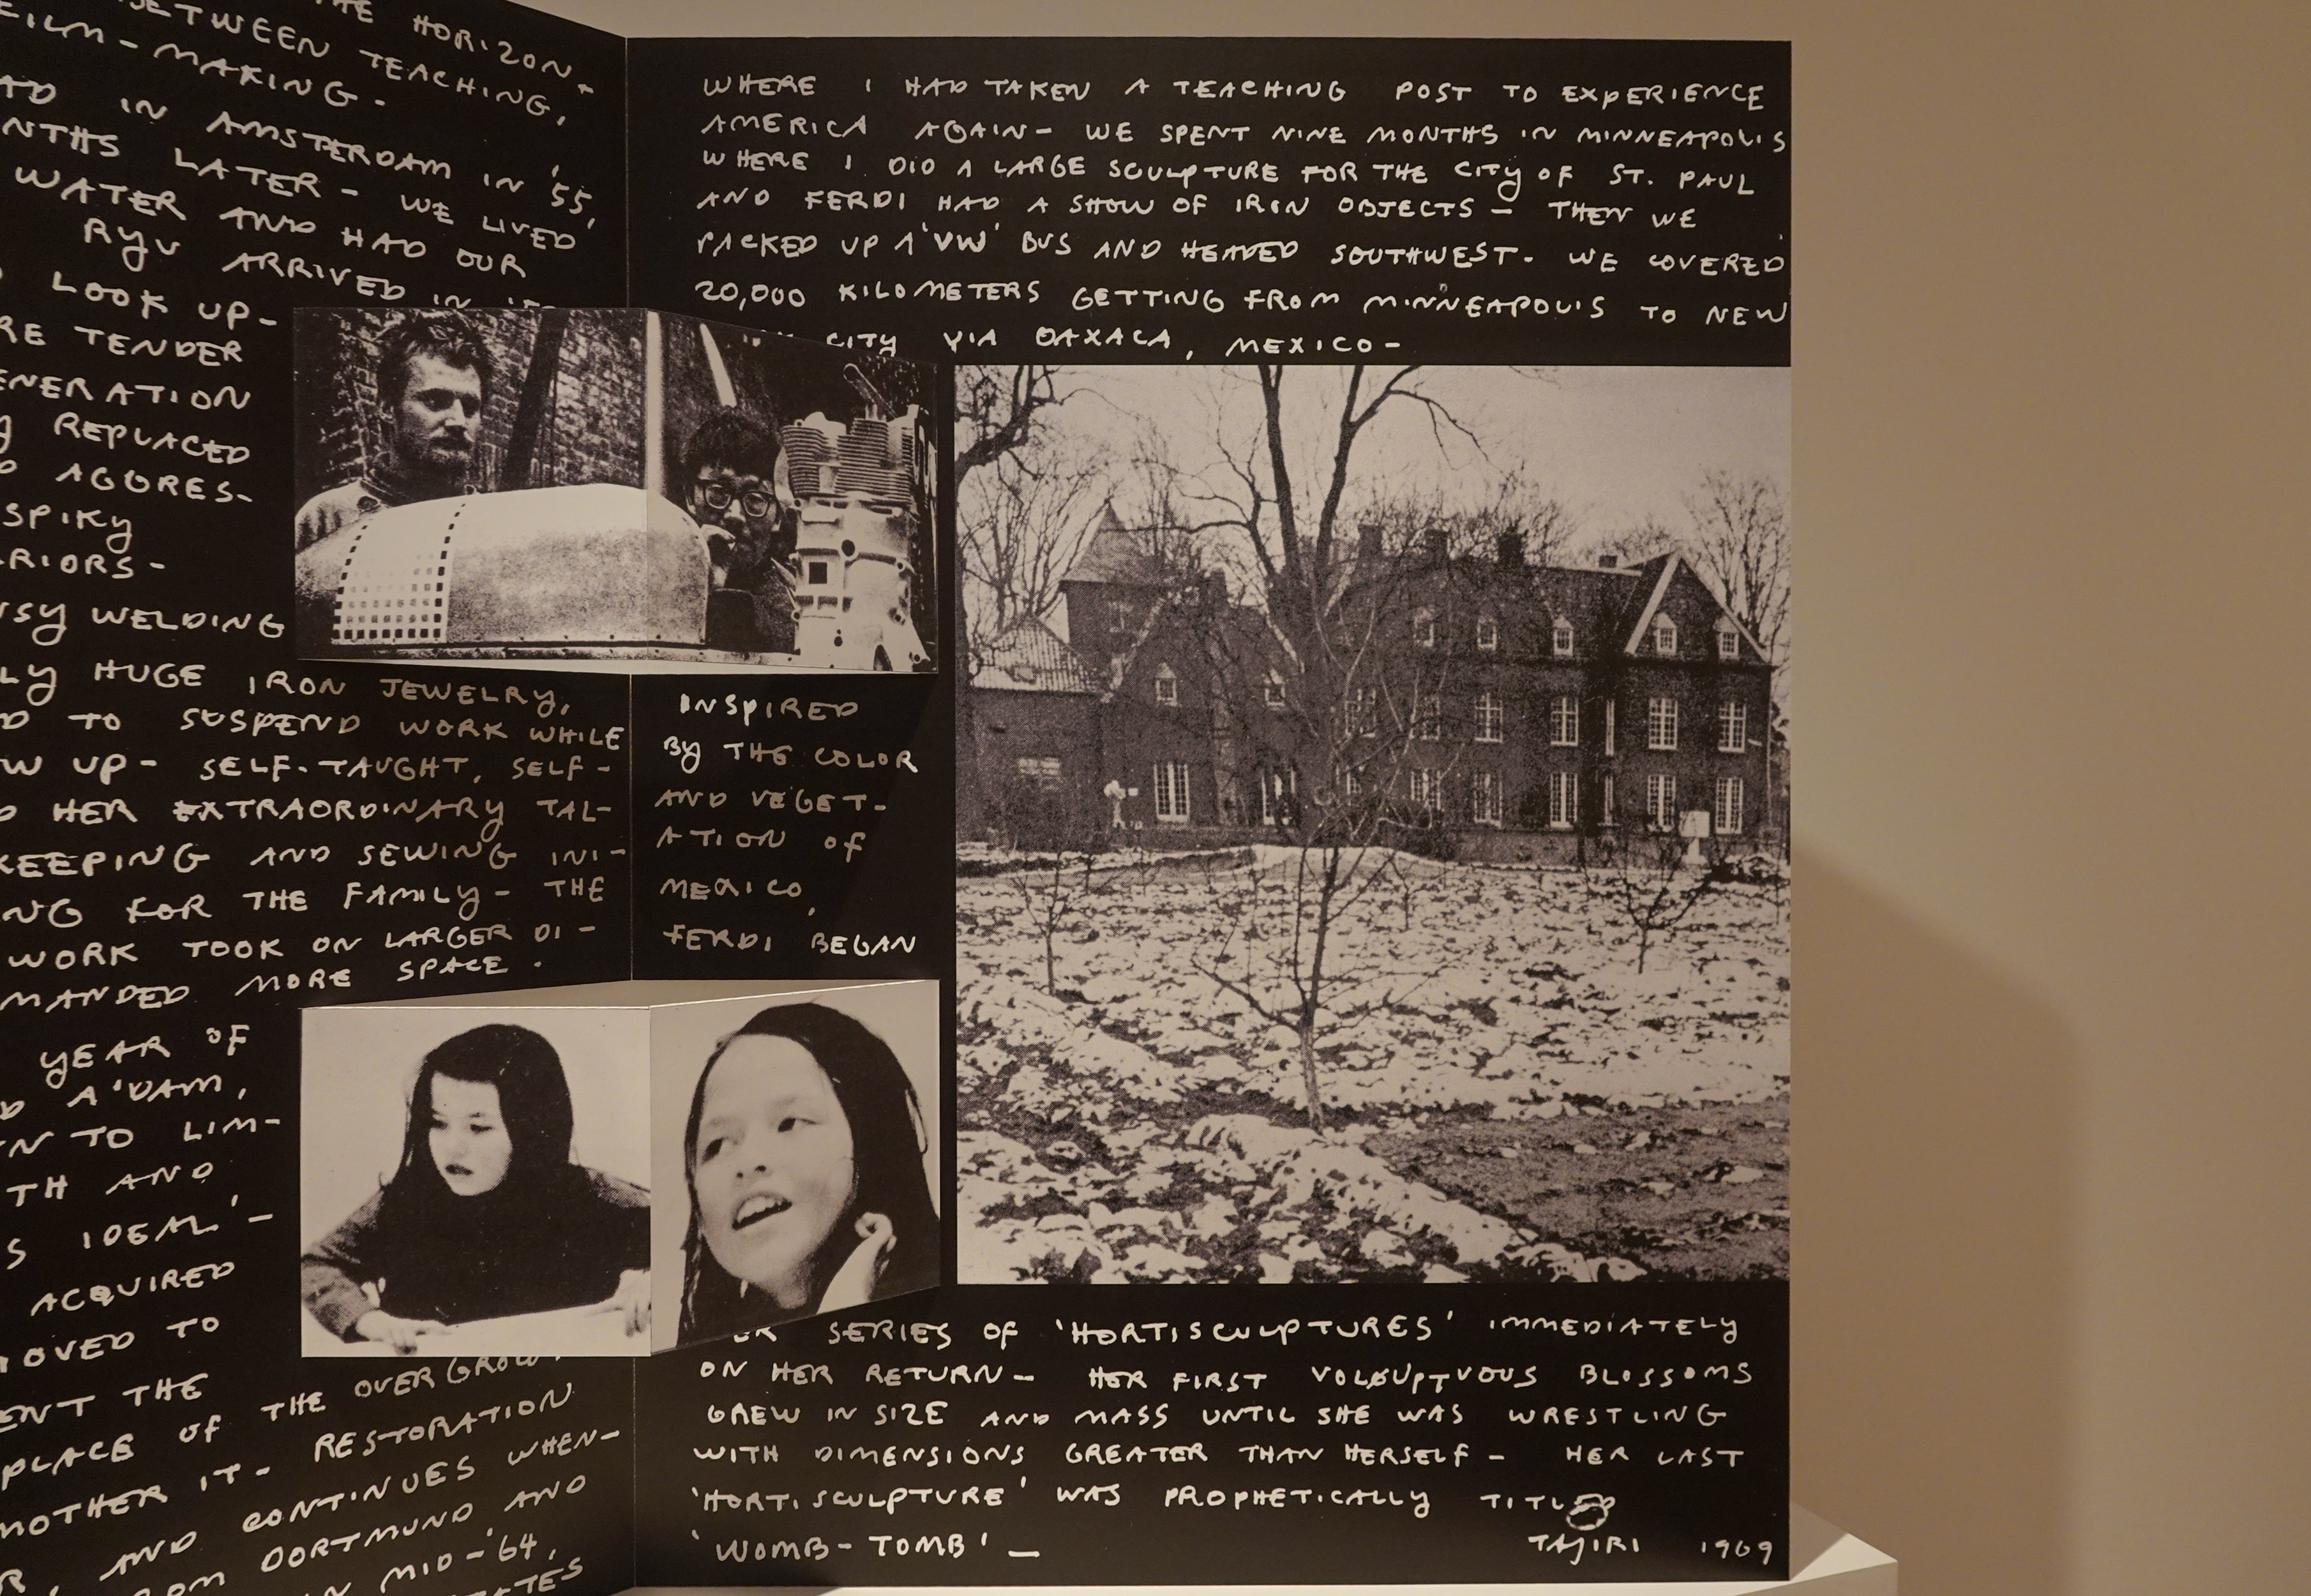 THE HORIZON-
BETWEEN TEACHING,
FILM-MAKING-
IN AMSTERDAM IN '55,
LATER- WE LIVED
WATER AND HAD OUR
RYU ARRIVED IN
LOOK UP-
TENDER
REPLACED
AGGRES-
SPIKY
WELDING
HUGE IRON JEWELRY,
TO SUSPEND WORK WHILE
UP- SELF-TAUGHT, SELF-
HER EXTRAORDINARY TAL-
KEEPING AND SEWING INI-
FOR THE FAMILY- THE
WORK TOOK ON LARGER DI-
MORE SPACE.
YEAR OF
A'DAM,
TO LIM-
AND
IDEAL'-
ACQUIRED
TO
THE
PLACE OF THE OVERGROW
IT- RESTORATION
AND CONTINUES WHEN-
DORTMUND AND
MID-'64,
WHERE I HAD TAKEN A TEACHING POST TO EXPERIENCE
AMERICA AGAIN- WE SPENT NINE MONTHS IN MINNEAPOLIS
WHERE I DID A LARGE SCULPTURE FOR THE CITY OF ST. PAUL
AND FERDI HAD A SHOW OF IRON OBJECTS- THEN WE
PACKED UP A 'VW' BUS AND HEADED SOUTHWEST- WE COVERED
20,000 KILOMETERS GETTING FROM MINNEAPOLIS TO NEW
CITY VIA OAXACA, MEXICO-
INSPIRED
BY THE COLOR
AND VEGET-
ATION OF
MEXICO,
FERDI BEGAN
SERIES OF 'HORTISCULPTURES' IMMEDIATELY
ON HER RETURN- HER FIRST VOLOUPTUOUS BLOSSOMS
GREW IN SIZE AND MASS UNTIL SHE WAS WRESTLING
WITH DIMENSIONS GREATER THAN HERSELF- HER LAST
'HORTISCULPTURE' WAS PROPHETICALLY TITLED
'WOMB-TOMB'-
TAJIRI 1969